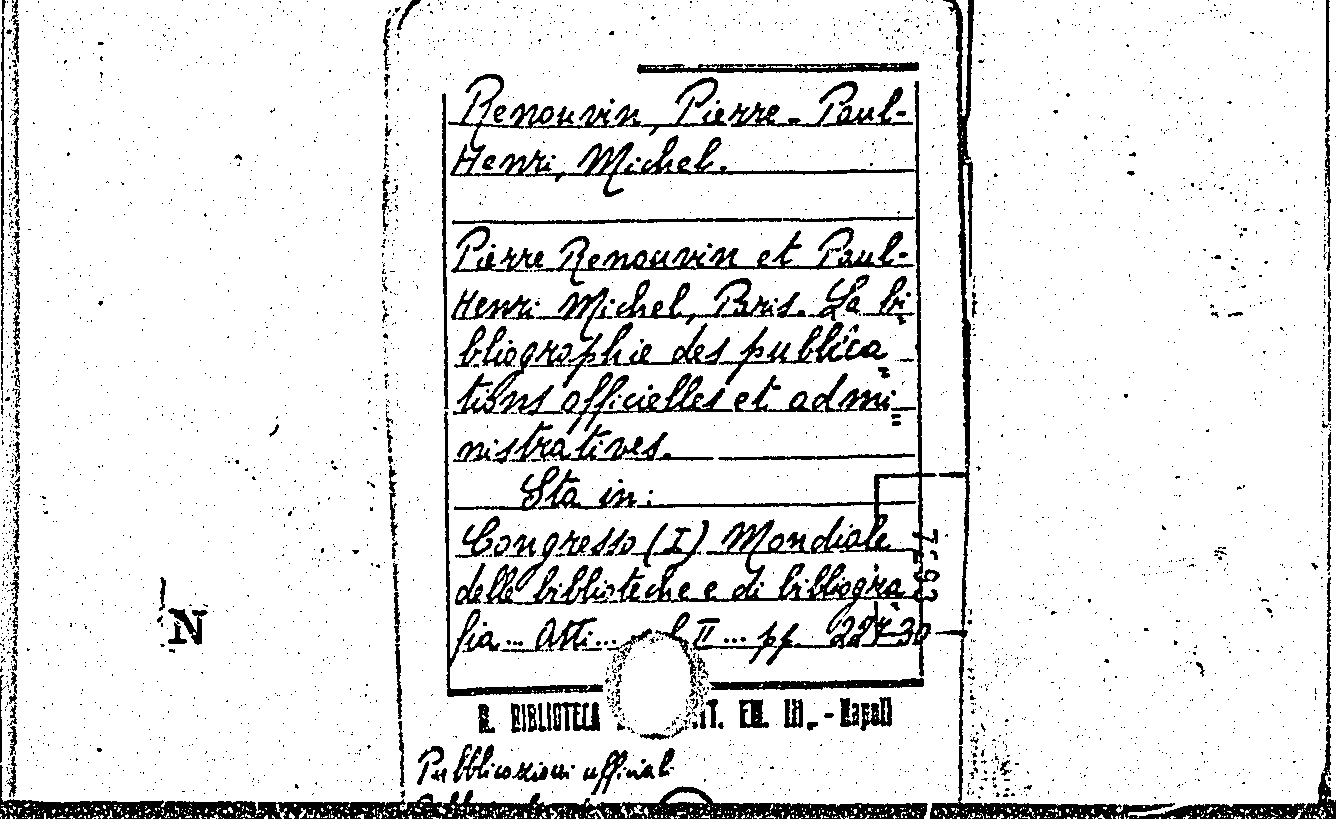 Renouvin, Pierre - Paul-
Henri, Michel.
Pierre Renouvin et Paul-
Henri Michel, Paris. La bi
bliographie des publica
tions officielles et admi
nistratives.
Sta in:
Congresso (I) Mondiale
delle biblioteche e di bibliogra
fia... Atti... II... pp. 227-30
R. BIBLIOTECA EM. III. - Napoli
Pubblicazioni ufficiali
N